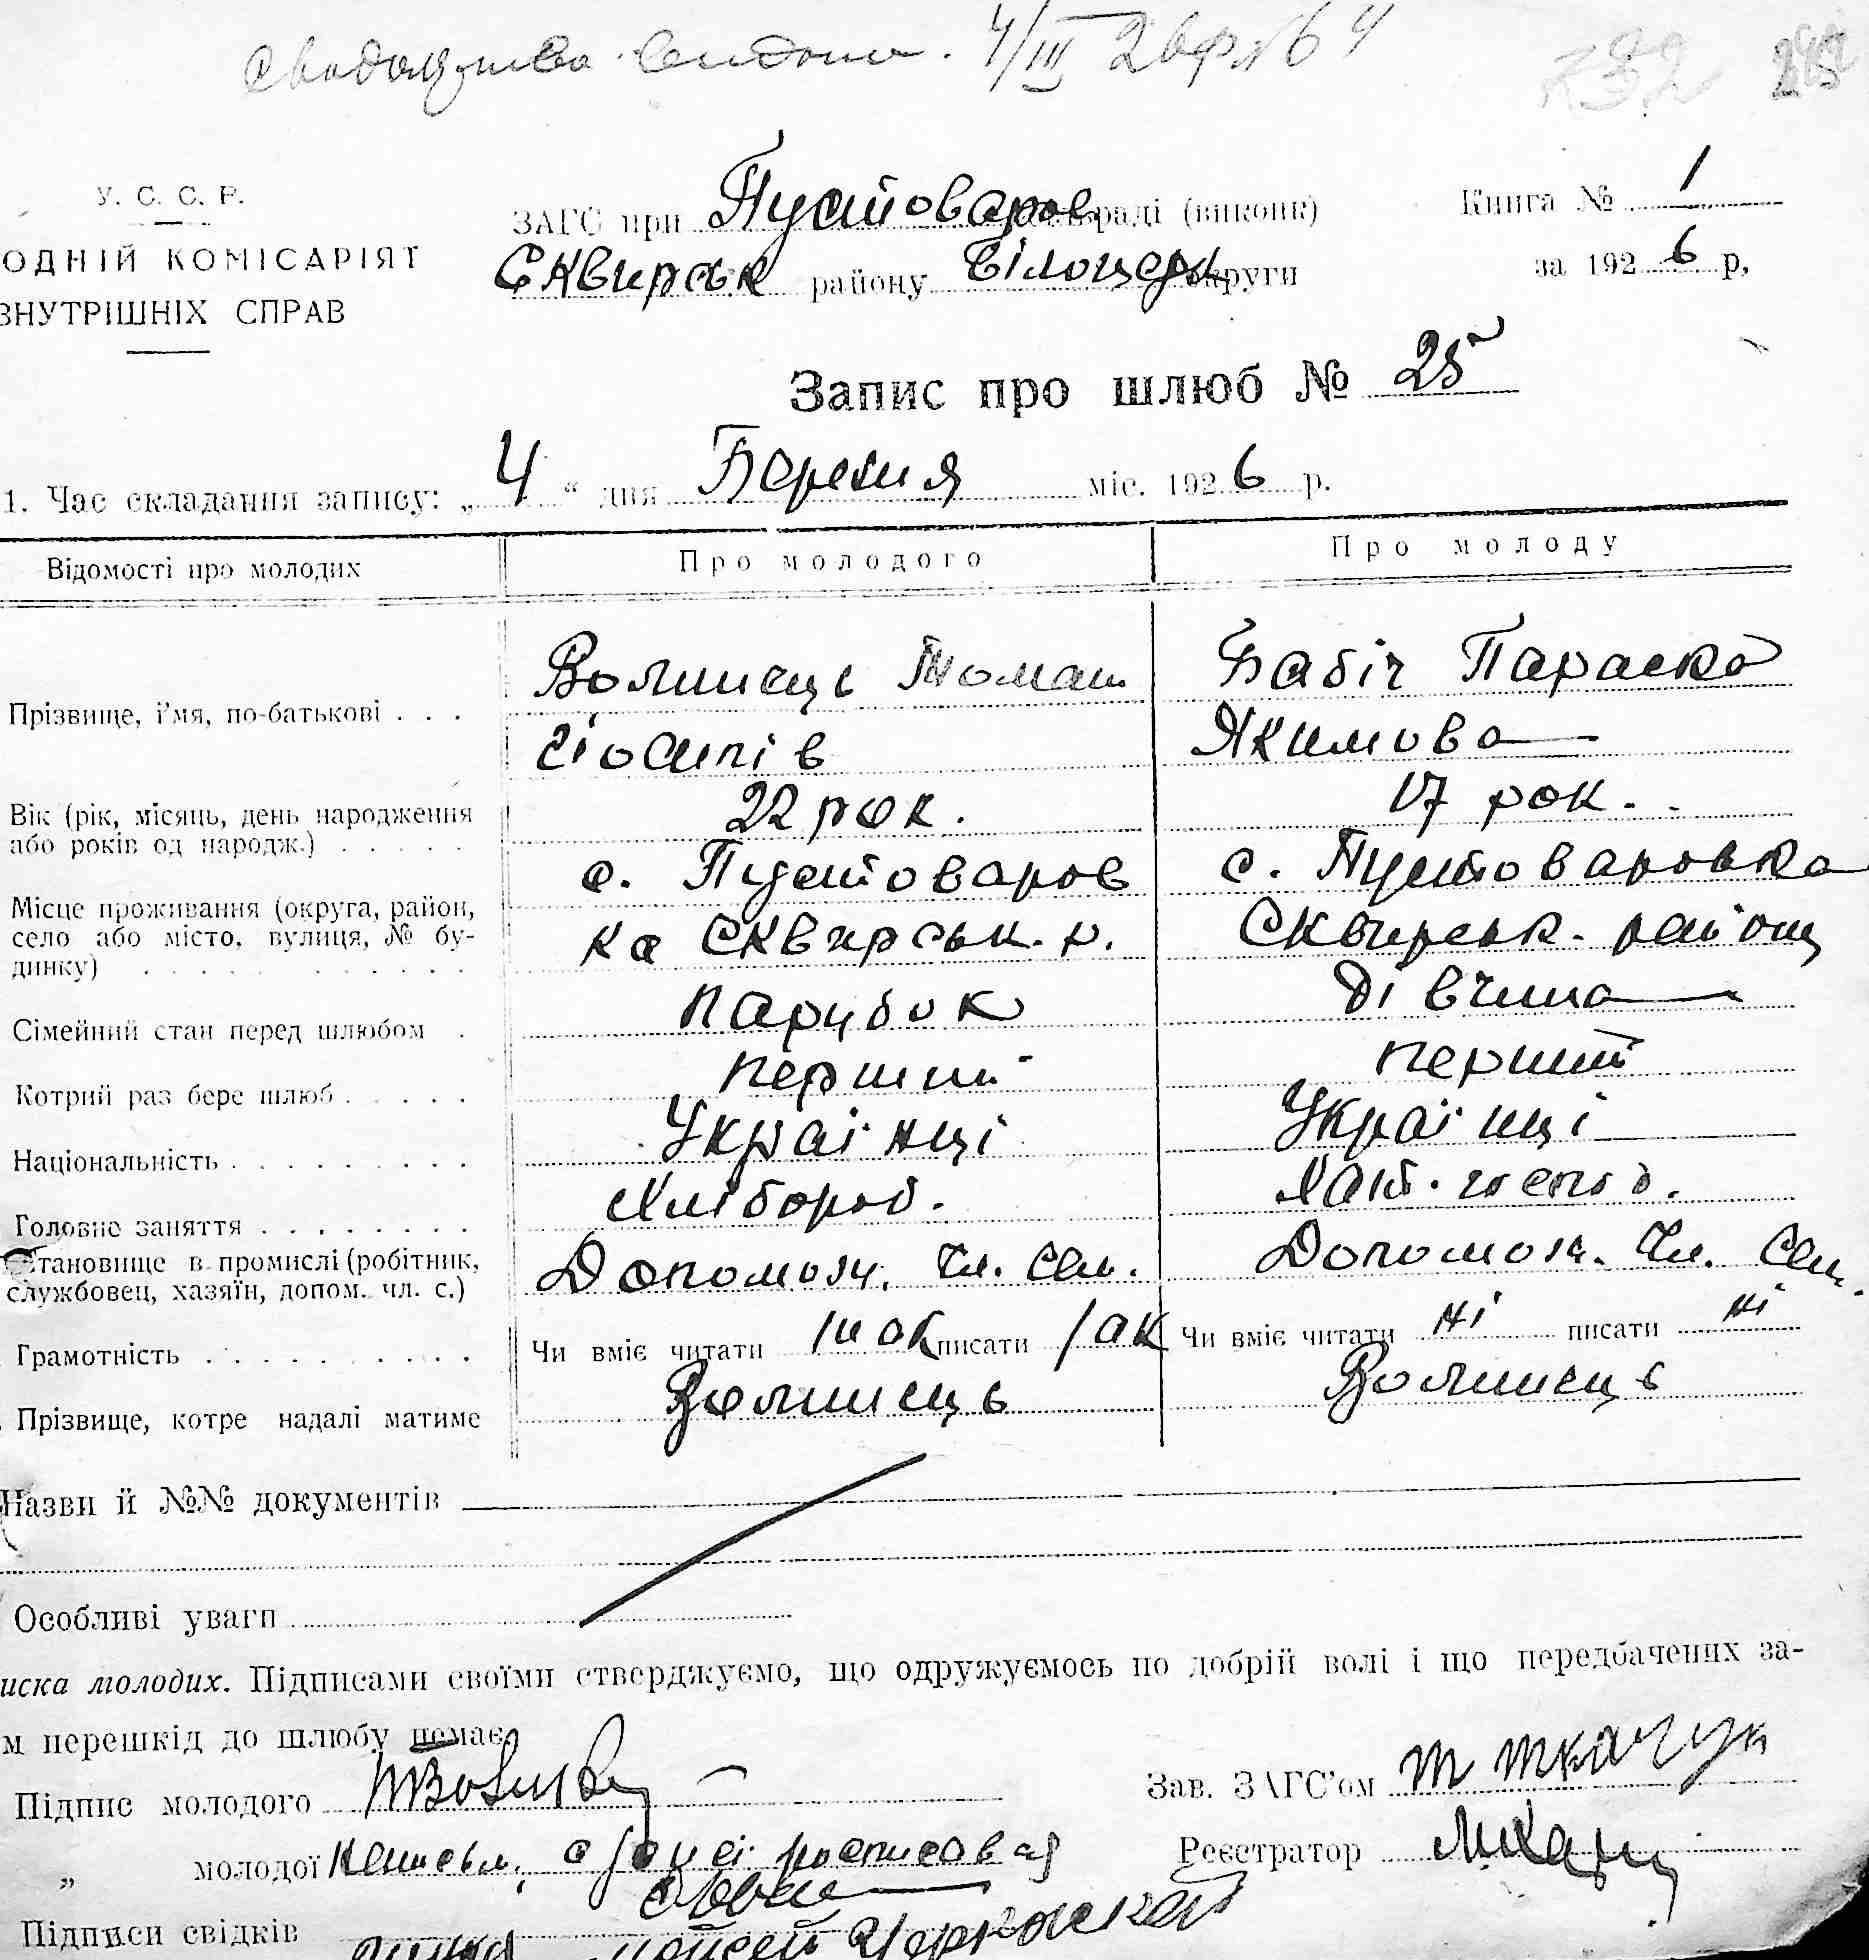 4/III 26 р № 64
У. С. С. Р.
ОДНІЙ КОМІСАРІЯТ
ВНУТРІШНІХ СПРАВ
ЗАГС при Пустоваров раді (виконк)
Сквирськ району Білоцерк округи
Книга № 1
за 1926 р,
Запис про шлюб № 25
1. Час складання запису: „ 4 “ дня Березня міс. 1926 р.
Відомості про молодих Про молодого Про молоду
Прізвище, і'мя, по-батькові . . . Волинець Томаш Бабіч Параска
Йосипів Якимова
Вік (рік, місяць, день народження 22 рок. 17 рок.
або років од народж.) . . . . .
с. Пустоваров с. Пустоваровка
Місце проживання (округа, район,
село або місто, вулиця, № бу- ка Сквирськ. р. Сквирськ. району
динку) . . . . . . . . . . .
Сімейний стан перед шлюбом . Парубок Дівчина
Котрий раз бере шлюб . . . . . перший перший
Національність . . . . . . . . . Украінці Украінці
Головне заняття . . . . . . . . Хлібороб. Хат. госпо д.
Становище в промислі (робітник, Допомож. Чл. Сем. Допомож. Чл. Сем.
службовец, хазяїн, допом. чл. с.)
Грамотність . . . . . . . . . . Чи вміє читати так писати так Чи вміє читати ні писати ні
Прізвище, котре надалі матиме Волинець Волинець
Назви й №№ документів
Особливі уваги
иска молодих. Підписами своїми стверджуємо, що одружуємось по добрій волі і що передбачених за-
м перешкід до шлюбу немає
Підпис молодого
Зав. ЗАГС'ом Т Ткачук
„ молодої
Реєстратор
Підписи свідків